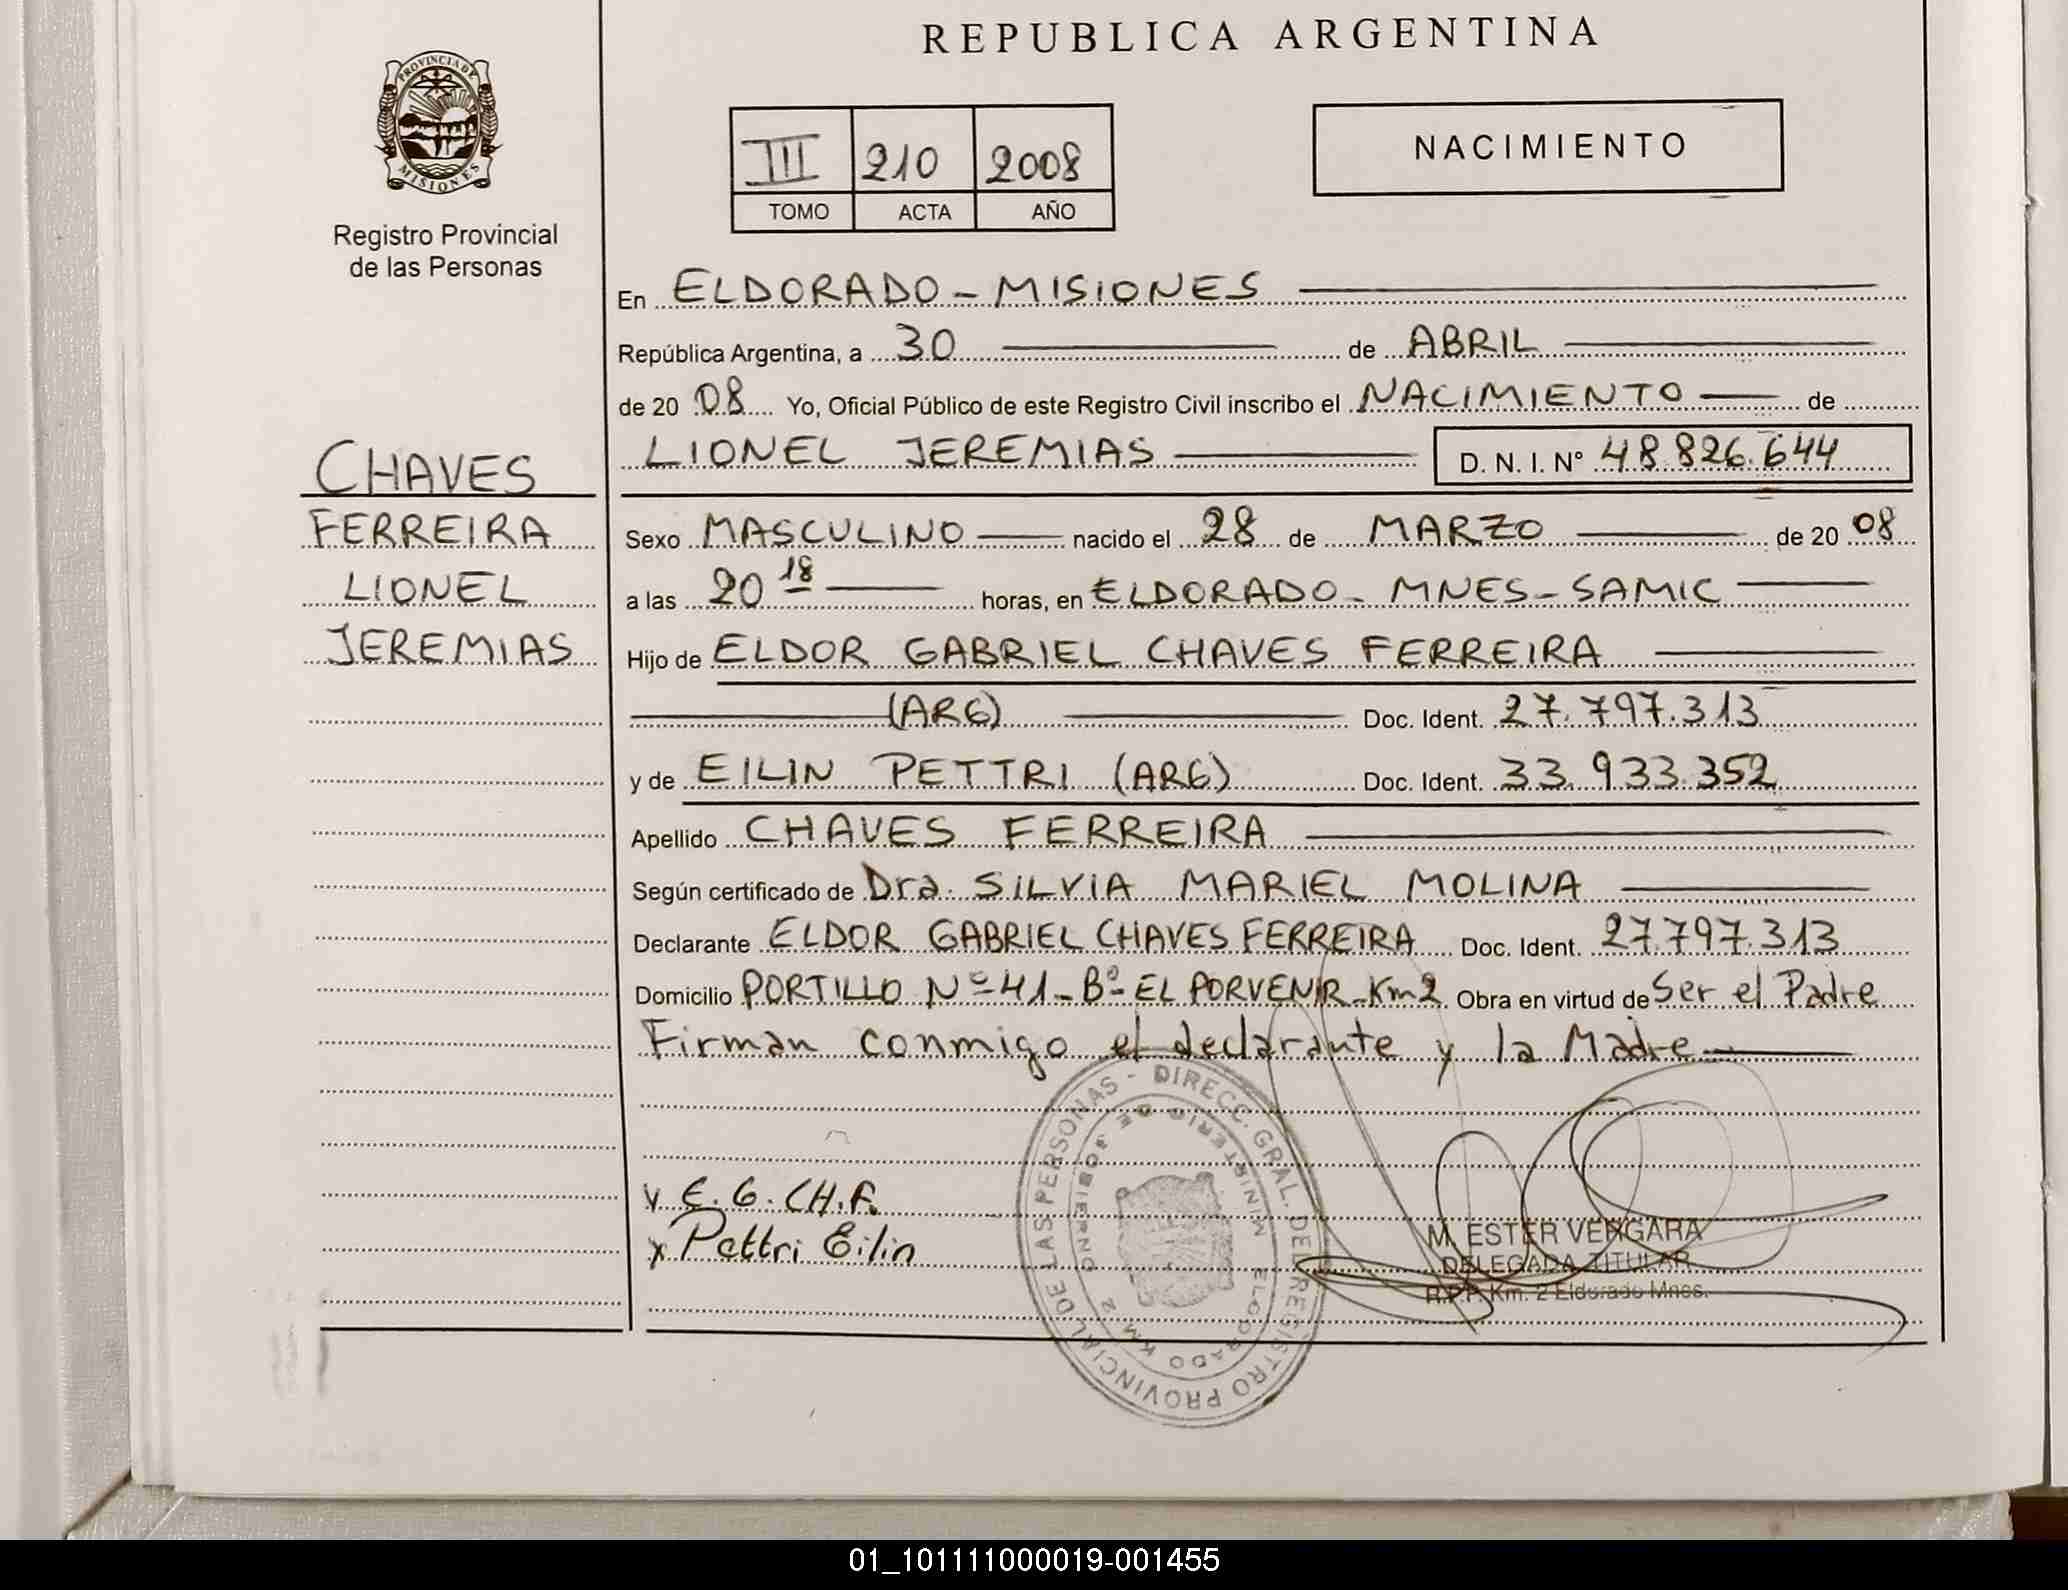 REPUBLICA ARGENTINA
PROVINCIA DE
MISIONES
Registro Provincial
de las Personas
III 210 2008
TOMO ACTA AÑO
NACIMIENTO
En ELDORADO - MISIONES
República Argentina, a 30 de ABRIL
de 20 08 Yo, Oficial Público de este Registro Civil inscribo el NACIMIENTO de
LIONEL JEREMIAS D. N. I. Nº 48.826.644
CHAVES
FERREIRA
LIONEL
JEREMIAS
Sexo MASCULINO nacido el 28 de MARZO de 20 08
a las 20 18 horas, en ELDORADO - MNES - SAMIC
Hijo de ELDOR GABRIEL CHAVES FERREIRA
(ARG) Doc. Ident. 27.797.313
y de EILIN PETTRI (ARG) Doc. Ident. 33.933.352
Apellido CHAVES FERREIRA
Según certificado de Dra. SILVIA MARIEL MOLINA
Declarante ELDOR GABRIEL CHAVES FERREIRA Doc. Ident. 27.797.313
Domicilio PORTILLO Nº 41 - Bº EL PORVENIR - Km 2 Obra en virtud de Ser el Padre
Firman conmigo el declarante y la Madre
x E. G. CH. F.
x Pettri Eilin
DIRECC. GRAL. DEL REGISTRO PROVINCIAL DE LAS PERSONAS -
MINISTERIO DE GOBIERNO
ELDORADO KM 2
M. ESTER VERGARA
DELEGADA TITULAR
R.P.P. Km. 2 Eldorado Mnes.
01_101111000019-001455